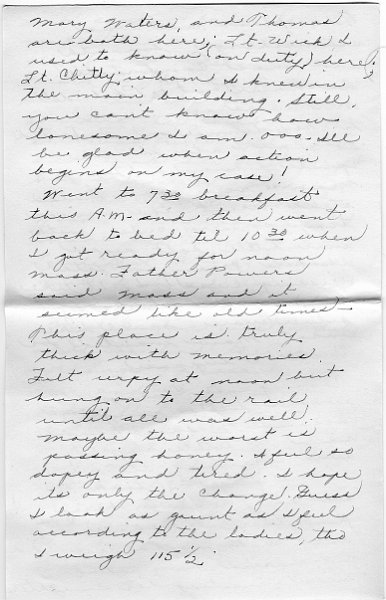 Mary Waters, and Thomas
are both here; Lt. Wick I
used to know (on duty) here;
Lt. Chitty whom I knew in
the main building. Still,
you can't know how
lonesome I am. ooo. I'll
be glad when action
begins on my case!
Went to 7 30 breakfast
this A.M. and then went
back to bed til 10 30 when
I got ready for noon
mass. Father Powers
said mass and it
seemed like old times—
This place is truly
thick with memories.
Felt urpy at noon but
hung on to the rail
until all was well.
Maybe the worst is
passing honey. I feel so
dopey and tired. I hope
its only the change. Guess
I look as gaunt as I feel
according to the ladies, tho
I weigh 115 1/2.